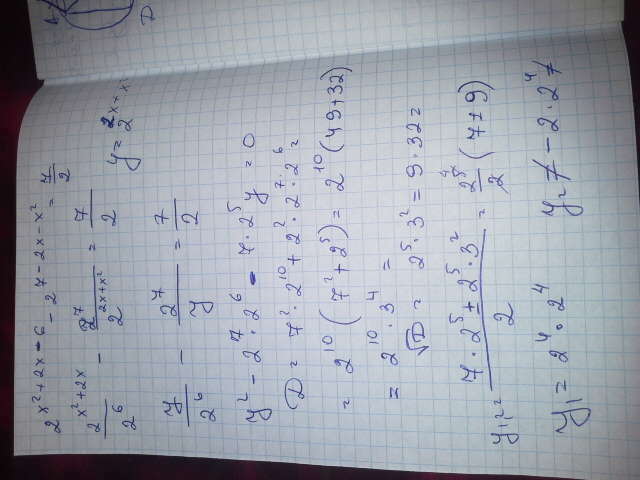 2^{x²+2x-6} - 2^{7-2x-x²} = 7/2
2^{x²+2x}/2⁶ - 2⁷/2^{2x+x²} = 7/2
y = 2^{2x+x
y/2⁶ - 2⁷/y = 7/2
y² - 2⁷·2⁶ - 7·2⁵y = 0
D = 7²·2¹⁰ + 2²·2⁷·2⁶ =
= 2¹⁰(7² + 2⁵) = 2¹⁰(49+32)
= 2¹⁰·3⁴ =
√D = 2⁵·3² = 9·32 =
y₁,₂ = (7·2⁵ ± 2⁵·3²)/2 = 2⁵/2 ⁴ (7±9)
y₁ = 2⁴·2⁴ y₂ ≠ -2·2⁴ ≠
A
D